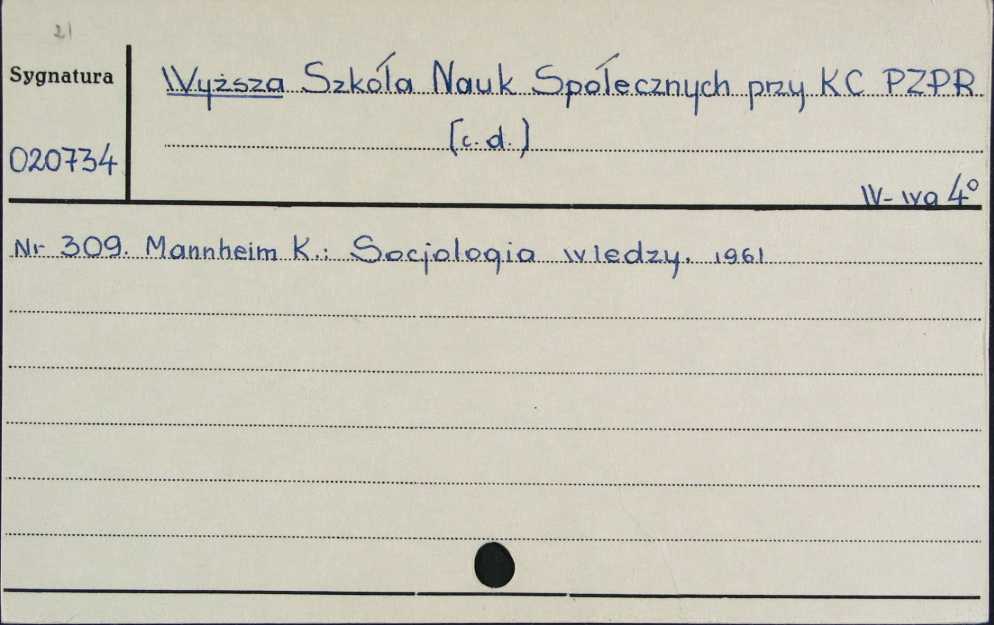 21
Sygnatura
Wyższa Szkoła Nauk Społecznych przy KC PZPR
(c.d.)
020734
W-wa 4°
Nr 309. Mannheim K.: Socjologia wiedzy. 1961